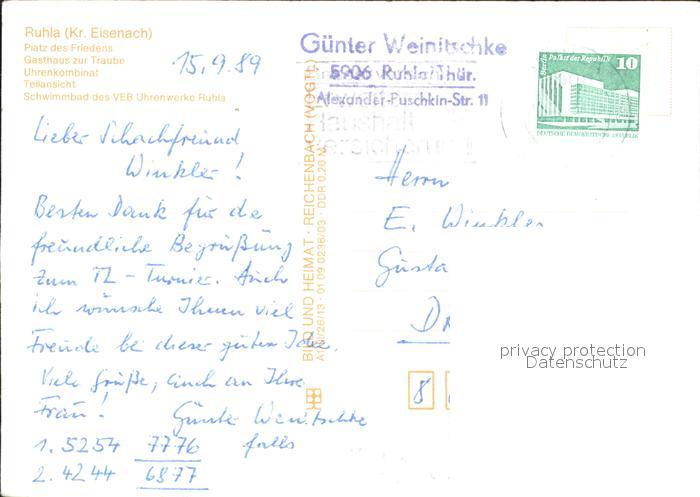 Ruhla (Kr. Eisenach)
Platz des Friedens
Gasthaus zur Traube
Uhrenkombinat
Teilansicht
Schwimmbad des VEB Uhrenwerke Ruhla
15.9.89
Lieber Schachfreund
Winkler!
Besten Dank für die
freundliche Begrüßung
zum TL-Turnier. Auch
ich wünsche Ihnen viel
Freude bei dieser guten Idee.
Viele Grüße, auch an Ihre
Frau!
Günter Weinitschke
1. 5254 7776 falls
2. 4244 6877
BILD UND HEIMAT · REICHENBACH (VOGTL)
01 09 0296/03 · DDR 0,20 M
Günter Weinitschke
5906 Ruhla/Thür.
Alexander-Puschkin-Str. 11
Haushalt
Berlin Palast der Republik
10
DEUTSCHE DEMOKRATISCHE REPUBLIK
Herrn
E. Winkler
Gusta
Dr
8
privacy protection
Datenschutz